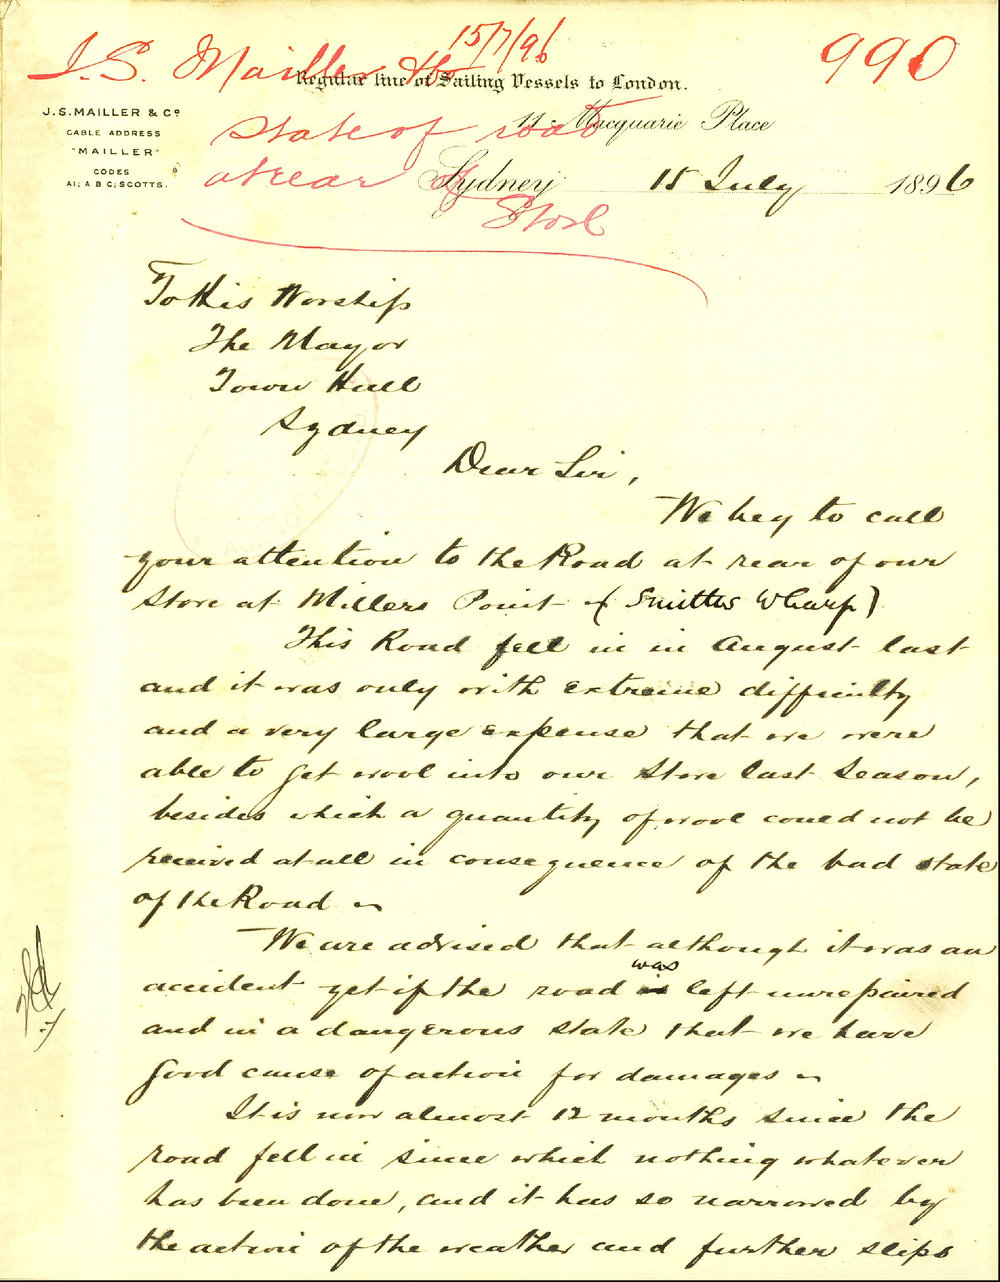 15/7/96
J. S. Mailler & Co
990
Regular line of Sailing Vessels to London.
J.S. MAILLER & Co
CABLE ADDRESS
"MAILLER"
CODES
A1; A B C; SCOTTS.
11 Macquarie Place
State of road
at rear of
Store
Sydney 15 July 1896
To His Worship
The Mayor
Town Hall
Sydney
Dear Sir,
We beg to call
your attention to the Road at rear of our
Store at Millers Point - (Smiths Wharf)
This Road fell in in August last
and it was only with extreme difficulty
and a very large expense that we were
able to get wool into our Store last Season,
besides which a quantity of wool could not be
received at all in consequence of the bad state
of the Road -
We are advised that although it was an
accident yet if the road was left unrepaired
and in a dangerous state that we have
good cause of action for damages -
It is now almost 12 months since the
road fell in since which nothing whatever
has been done, and it has so narrowed by
the action of the weather and further slips